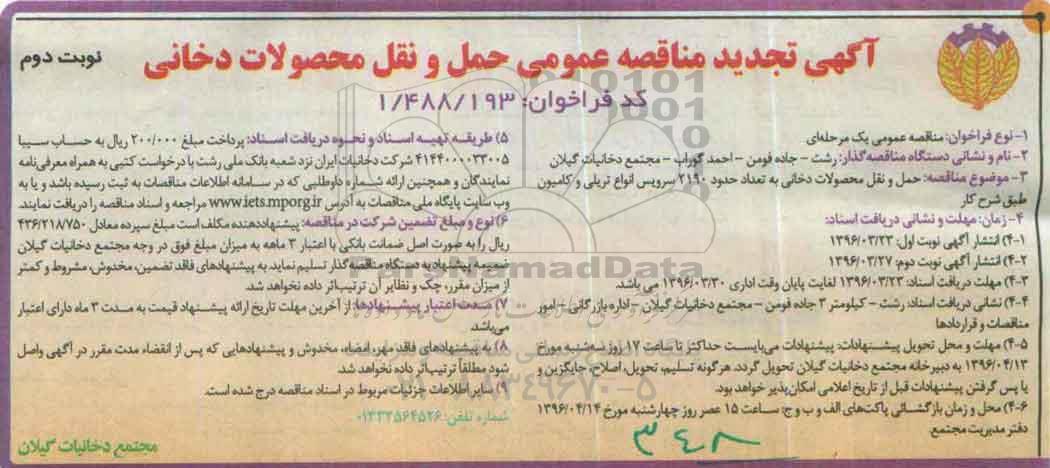 آگهی تجدید مناقصه عمومی حمل و نقل محصولات دخانی
نوبت دوم
کد فراخوان: ۱/۴۸۸/۱۹۳
۱- نوع فراخوان: مناقصه عمومی یک مرحله‌ای
۲- نام و نشانی دستگاه مناقصه‌گذار: رشت - جاده فومن - احمد گوراب - مجتمع دخانیات گیلان
۳- موضوع مناقصه: حمل و نقل محصولات دخانی به تعداد حدود ۲۱۹۰ سرویس انواع تریلی و کامیون
طبق شرح کار
۴- زمان: مهلت و نشانی دریافت اسناد:
۴-۱) انتشار آگهی نوبت اول: ۱۳۹۶/۰۳/۲۳
۴-۲) انتشار آگهی نوبت دوم: ۱۳۹۶/۰۳/۲۷
۴-۳) مهلت دریافت اسناد: ۱۳۹۶/۰۳/۲۳ لغایت پایان وقت اداری ۱۳۹۶/۰۳/۳۰ می باشد.
۴-۴) نشانی دریافت اسناد: رشت - کیلومتر ۳ جاده فومن - مجتمع دخانیات گیلان - اداره بازرگانی - امور
مناقصات و قراردادها
۴-۵) مهلت و محل تحویل پیشنهادات: پیشنهادات می‌بایست حداکثر تا ساعت ۱۷ روز سه‌شنبه مورخ
۱۳۹۶/۰۴/۱۳ به دبیرخانه مجتمع دخانیات گیلان تحویل گردد. هرگونه تسلیم، تحویل، اصلاح، جایگزین و
یا پس گرفتن پیشنهادات قبل از تاریخ اعلامی امکان‌پذیر خواهد بود.
۴-۶) محل و زمان بازگشائی پاکت‌های الف و ب و ج: ساعت ۱۵ عصر روز چهارشنبه مورخ ۱۳۹۶/۰۴/۱۴
دفتر مدیریت مجتمع.
۵) طریقه تهیه اسناد و نحوه دریافت اسناد: پرداخت مبلغ ۲۰۰/۰۰۰ ریال به حساب سیبا
۴۱۴۴۰۰۰۰۳۳۰۰۵ شرکت دخانیات ایران نزد شعبه بانک ملی رشت با درخواست کتبی به همراه معرفی‌نامه
نمایندگان و همچنین ارائه شماره داوطلبی که در سامانه اطلاعات مناقصات به ثبت رسیده باشد و یا به
وب سایت پایگاه ملی مناقصات به آدرس www.iets.mporg.ir مراجعه و اسناد مناقصه را دریافت نمایند.
۶) نوع و مبلغ تضمین شرکت در مناقصه: پیشنهاددهنده مکلف است مبلغ سپرده معادل ۴۳۶/۲۱۸/۷۵۰
ریال را به صورت اصل ضمانت بانکی با اعتبار ۳ ماهه به میزان مبلغ فوق در وجه مجتمع دخانیات گیلان
ضمیمه پیشنهاد به دستگاه مناقصه‌گذار تسلیم نماید. به پیشنهادهای فاقد تضمین، مخدوش، مشروط و کمتر
از میزان مقرر، چک و نظایر آن ترتیب‌اثر داده نخواهد شد.
۷) مدت اعتبار پیشنهادها: از آخرین مهلت تاریخ ارائه پیشنهاد قیمت به مدت ۳ ماه دارای اعتبار
می‌باشد.
۸) به پیشنهادهای فاقد مهر، امضاء، مخدوش و پیشنهادهایی که پس از انقضاء مدت مقرر در آگهی واصل
شود مطلقاً ترتیب‌اثر داده نخواهد شد.
۹) سایر اطلاعات جزئیات مربوط در اسناد مناقصه درج شده است.
شماره تلفن: ۰۱۳۳۲۵۶۴۵۲۶
مجتمع دخانیات گیلان
ParsNamadData
۳۴۸